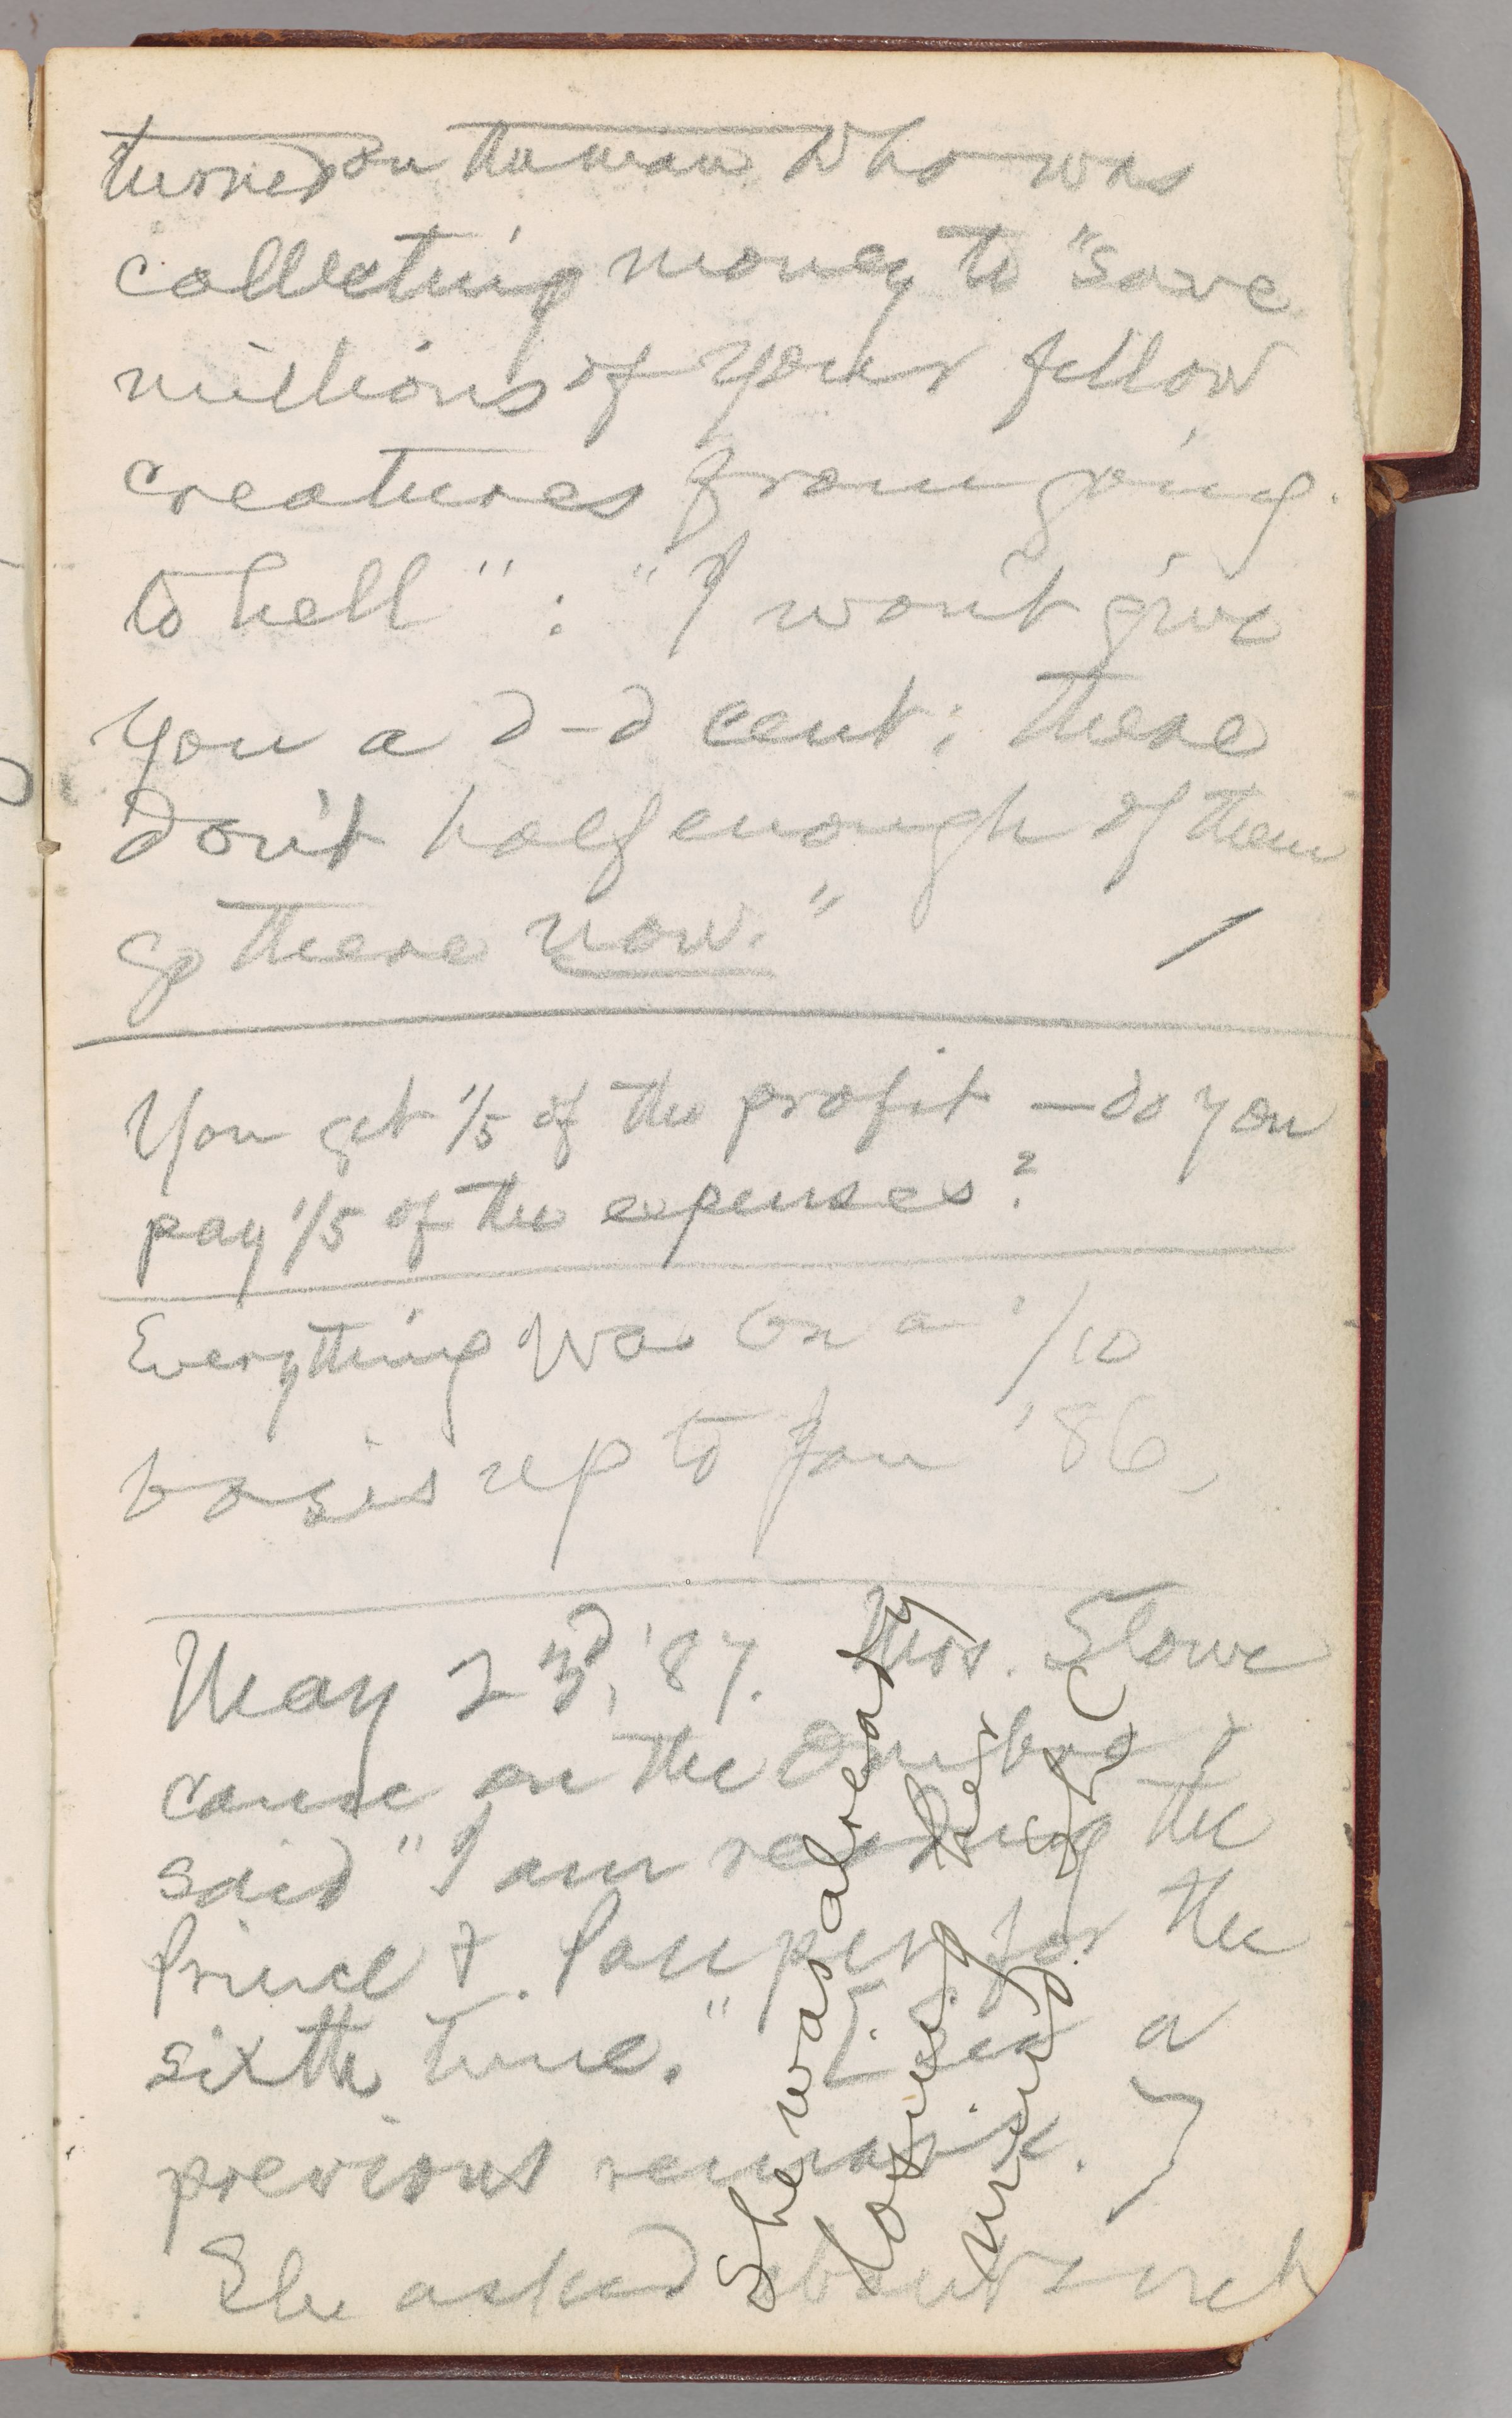 turned on the man who was
collecting money to "save
millions of your fellow
creatures from going
to hell": "I won't give
you a d–d cent; there
don't half enough of them
go there now."
You get 1/5 of the profit — do you
pay 1/5 of the expenses?
Everything was on a 1/10
basis up to Jan '86,
May 23d, '87. Mrs. Stowe
came on the Ombra &
said "I am reading the
Prince & Pauper for the
sixth time." [See a
previous remark.]
She asked about such
She was already
losing her
mind. SLC